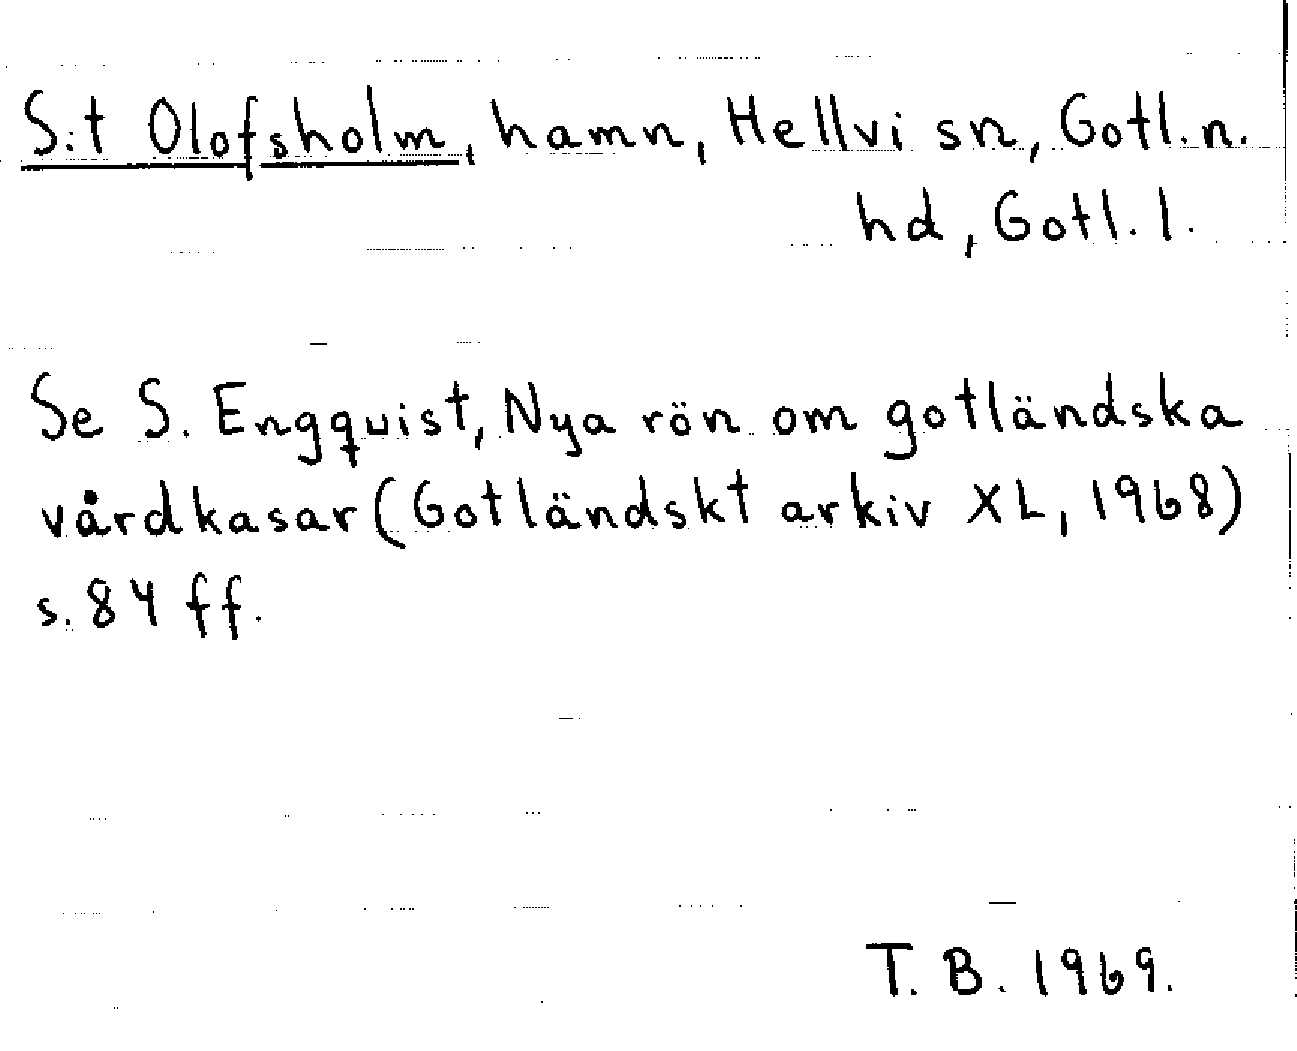 S:t Olofsholm, hamn, Hellvi sn, Gotl.n.
hd, Gotl. l.
Se S. Engquist, Nya rön om gotländska
vårdkasar (Gotländskt arkiv XL, 1968)
s. 84 ff.
T. B. 1969.